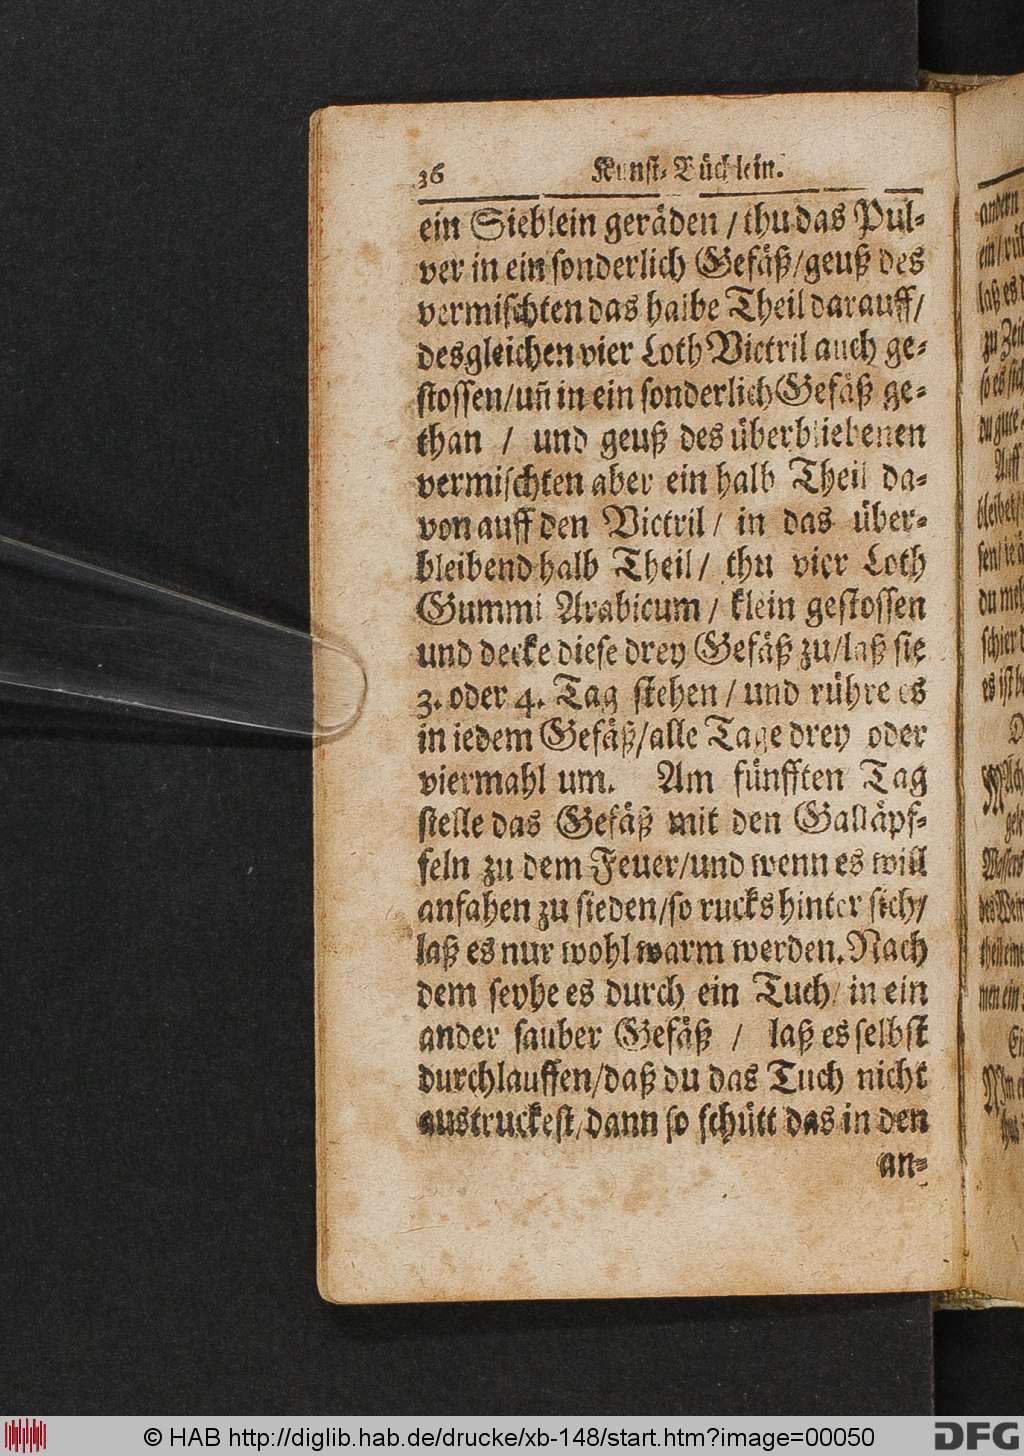 36 Kunst-Bücklein.
ein Sieblein geräden / thu das Pul-
ver in ein sonderlich Gefäß/geuß des
vermischten das halbe Theil darauff/
desgleichen vier Loth Victril auch ge-
stossen/uñ in ein sonderlich Gefäß ge-
than / und geuß des überbliebenen
vermischten aber ein halb Theil da-
von auff den Victril/ in das über-
bleibend halb Theil/ thu vier Loth
Gummi Arabicum/ klein gestossen
und decke diese drey Gefäß zu/laß sie
3. oder 4. Tag stehen/ und rühre es
in iedem Gefäß/alle Tage drey oder
viermahl um. Am fünfften Tag
stelle das Gefäß mit den Galläpf-
feln zu dem Feuer/und wenn es will
anfahen zu sieden/so rucks hinter sich/
laß es nur wohl warm werden. Nach
dem seyhe es durch ein Tuch/ in ein
ander sauber Gefäß / laß es selbst
durchlauffen/daß du das Tuch nicht
austruckest/dann so schütt das in den
an-
andern
laß es
zu Zeit
du gute
Auff
es ist
© HAB http://diglib.hab.de/drucke/xb-148/start.htm?image=00050
DFG